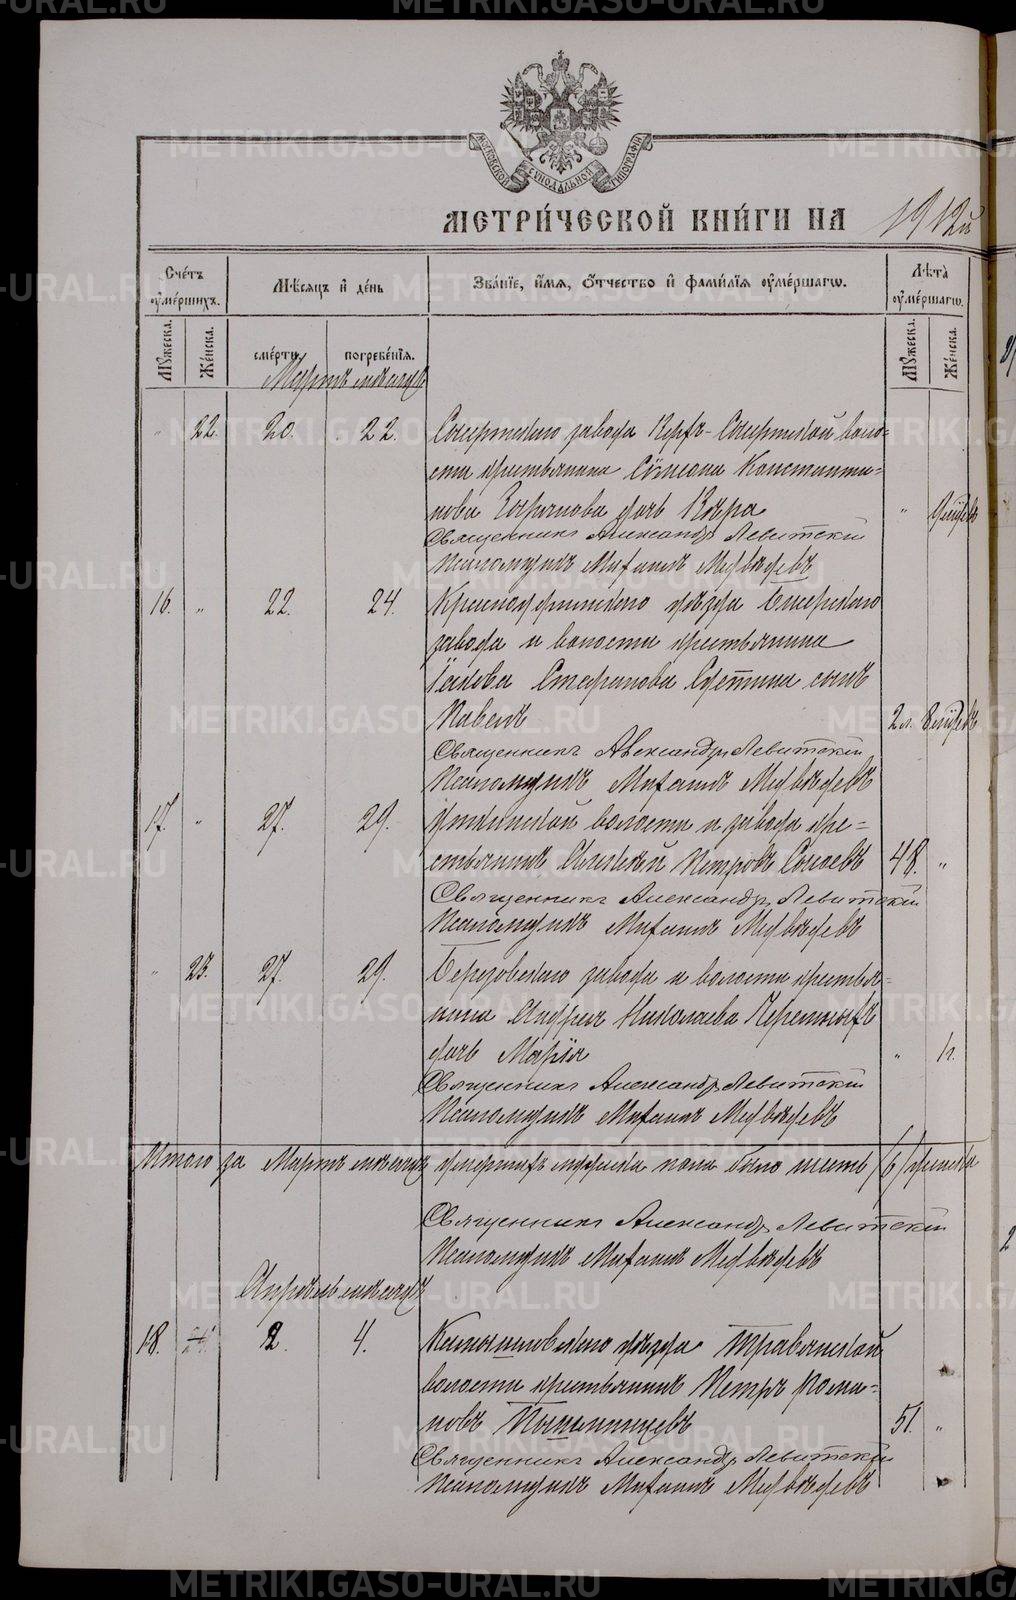 METRIKI.GASO-URAL.RU
МОСКОВСКОЙ СѴНОДАЛЬНОЙ ТИПОГРАФІИ
МЕТРИ́ЧЕСКОЙ КНИ́ГИ НА 1912й
Сче́тъ ᲂу҆ме́ршихъ.
Мѣ́сяцъ и҆ де́нь
Зва́нїе, и҆́мѧ, ѻ҆́тчество и҆ фами́лїѧ ᲂу҆ме́ршагѡ.
Лѣта̀ ᲂу҆ме́ршагѡ.
Мꙋ́жеска.
Же́нска.
сме́рти.
погребе́нїѧ.
Мꙋ́жеска.
Же́нска.
Мартъ мѣсяцъ
" 22. 20. 22. Сысертскаго завода Верхъ-Сысертской воло-
сти крестьянина Сѵмеона Константи-
нова дочь Вѣра "
Священникъ Александръ Левитскій
Псаломщикъ Михаилъ Медвѣдевъ
16. " 22. 24. Красноуфимскаго уѣзда Бисерскаго
завода и волости крестьянина
Іакова Стафиова сынъ
Павелъ 2 л. 8 мѣсяцевъ
Священникъ Александръ Левитскій
Псаломщикъ Михаилъ Медвѣдевъ
17. " 27. 29. Уткинской волости и завода кре-
стьянинъ Алексѣй Петровъ Сысоевъ 48. "
Священникъ Александръ Левитскій
Псаломщикъ Михаилъ Медвѣдевъ
" 23. 27. 29. Березовскаго завода и волости крестья-
нина Андрея Николаева Черемныхъ
дочь Марія "
Священникъ Александръ Левитскій
Псаломщикъ Михаилъ Медвѣдевъ
Итого за Мартъ мѣсяцъ умершихъ мужеска пола было шесть /6/ женска
Священникъ Александръ Левитскій
Псаломщикъ Михаилъ Медвѣдевъ
Апрѣль мѣсяцъ
18. 2. 4. Камышловскаго уѣзда Травянской
волости крестьянинъ Петръ Рома-
новъ Пышминцевъ 51. "
Священникъ Александръ Левитскій
Псаломщикъ Михаилъ Медвѣдевъ